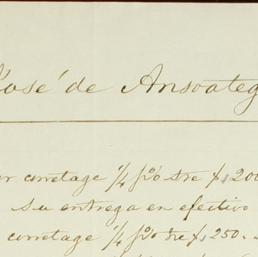 José de Ansoateg
r corretage ¼ p% sre $ 200
su entrega en efectivo
corretage ¼ p% sre $ 250.